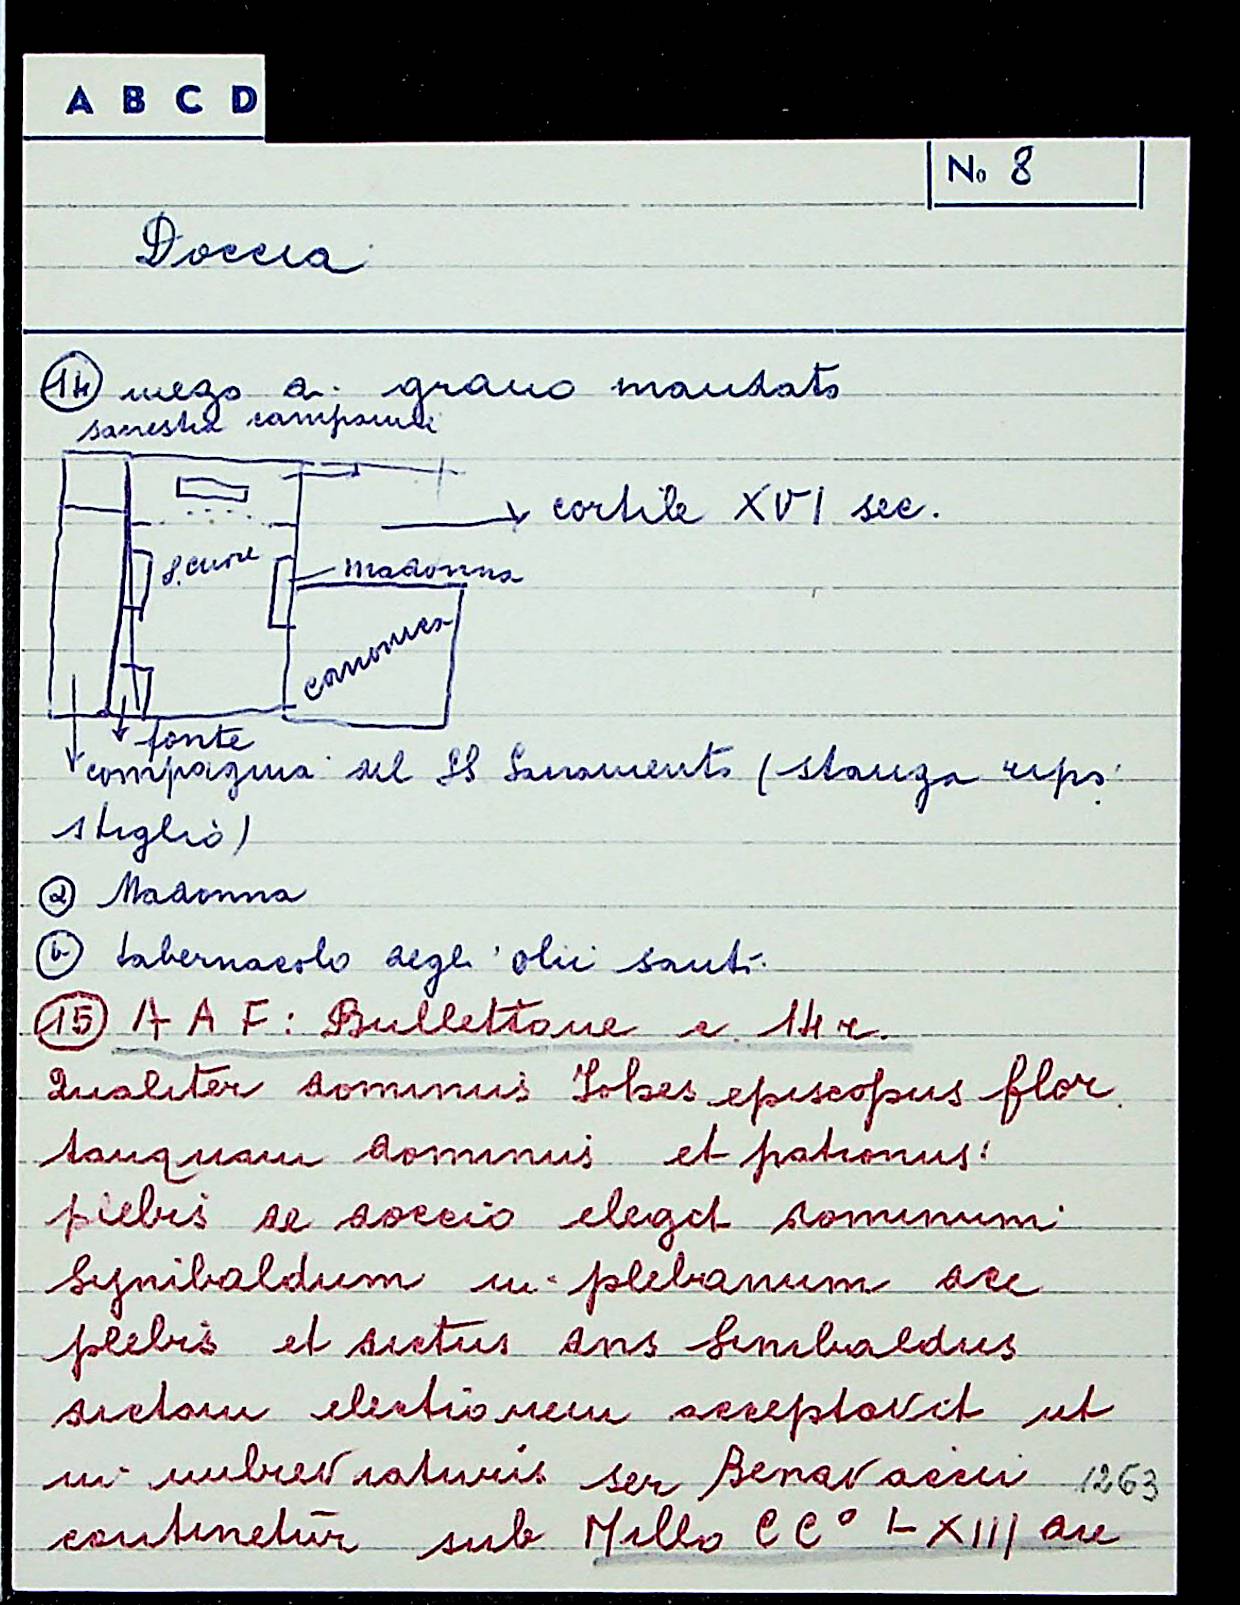 A B C D
No 8
Doccia
14 mezo di grano mandato
sanestra campanile
cortile XVI sec.
S. Cuore
Madonna
canonica
fonte
compagnia del SS Sacramento (stanza ripo
stiglio)
a Madonna
b tabernacolo degli olii santi.
15 A A F: Bullettone c. 14 r.
Qualiter dominus Johes episcopus flor.
tanquam dominus et patronus
plebis de doccio elegit dominum
Synibaldum in plebanum dce
plebis et dictus dns Sinibaldus
dictam electionem acceptavit ut
in imbreviaturis ser Benavacci 1263
continetur sub Millo CC° LXIII die